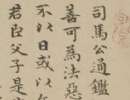 司馬公通鑑
善可為法惡
不以日或以
君臣父子是